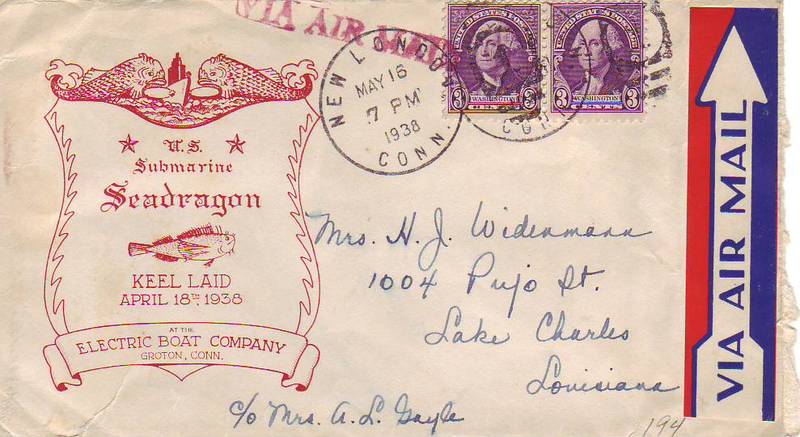 VIA AIR MAIL
NEW LONDON
MAY 16
7 PM
1938
CONN.
UNITED STATES POSTAGE
3 WASHINGTON 3
CENTS
UNITED STATES POSTAGE
3 WASHINGTON 3
CENTS
CONN.
U.S.
Submarine
Seadragon
KEEL LAID
APRIL 18TH 1938
AT THE
ELECTRIC BOAT COMPANY
GROTON, CONN.
Mrs. H. J. Widenmann
1004 Pujo St.
Lake Charles
Louisiana
c/o Mrs. A. L. Gayle
VIA AIR MAIL
194